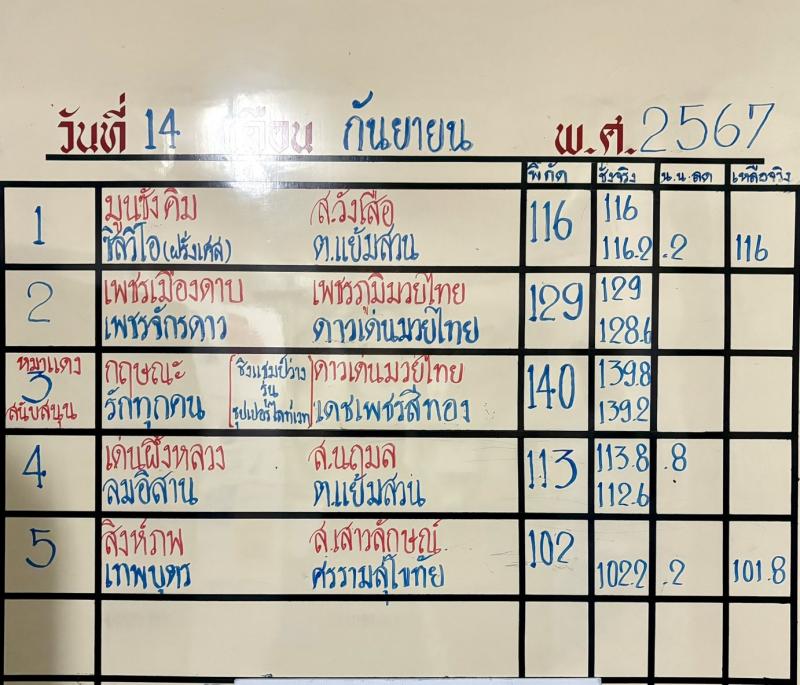 วันที่ 14 เดือน กันยายน พ.ศ. 2567
พิกัด ชั่งจริง น.น.ลด เหลือจริง
1 มูนชังคิม ส.วังเสือ 116 116
ซิลวีโอ (ฝรั่งเศส) ต.แย้มสวน 116.2 .2 116
2 เพชรเมืองดาบ เพชรภูมิมวยไทย 129 129
เพชรจักรดาว ดาวเด่นมวยไทย 128.6
หมาแดง 3 สนับสนุน กฤษณะ ดาวเด่นมวยไทย 140 139.8
[ชิงแชมป์ว่าง รุ่น ซุปเปอร์ไลท์เวท]
รักทุกคน เดชเพชรสีทอง 139.2
4 เด่นผึ้งหลวง ส.นฤมล 113 113.8 .8
ลมอีสาน ต.แย้มสวน 112.6
5 สิงห์ภพ ส.เสาวลักษณ์ 102
เทพบุตร ศรรามสุโขทัย 102.2 .2 101.8